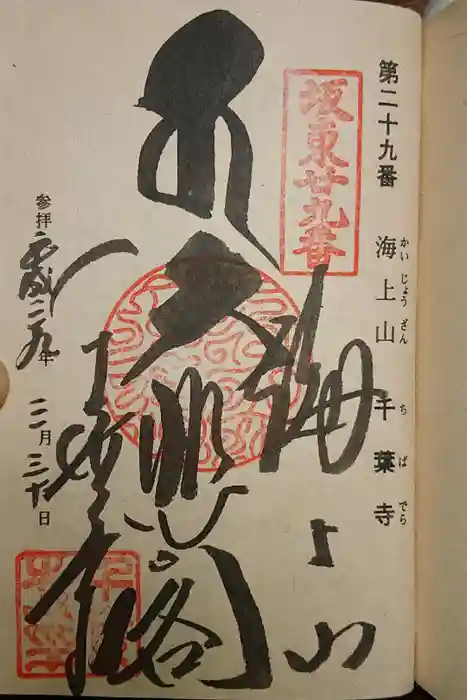 第二十九番 海上山 千葉寺
かいじょうざん ちばでら
坂東廿九番
海上山
大悲閣
千葉寺
参拝 平成二九年 三月三十日